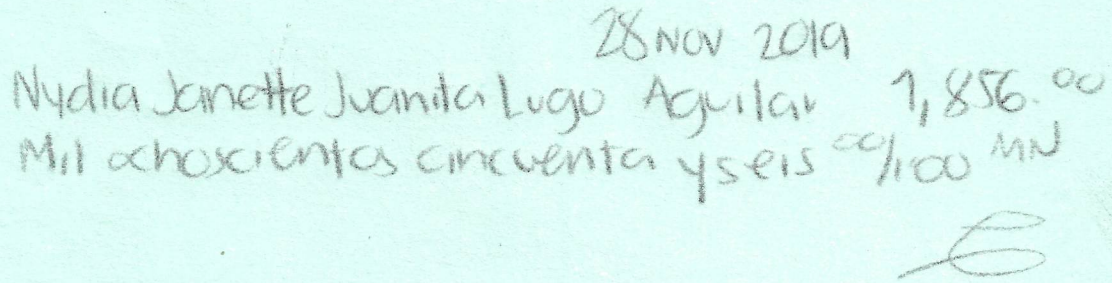 28 NOV 2019
Nydia Janette Juanita Lugo Aguilar 1,856.00
Mil ochoscientos cincuenta y seis 00/100 MN